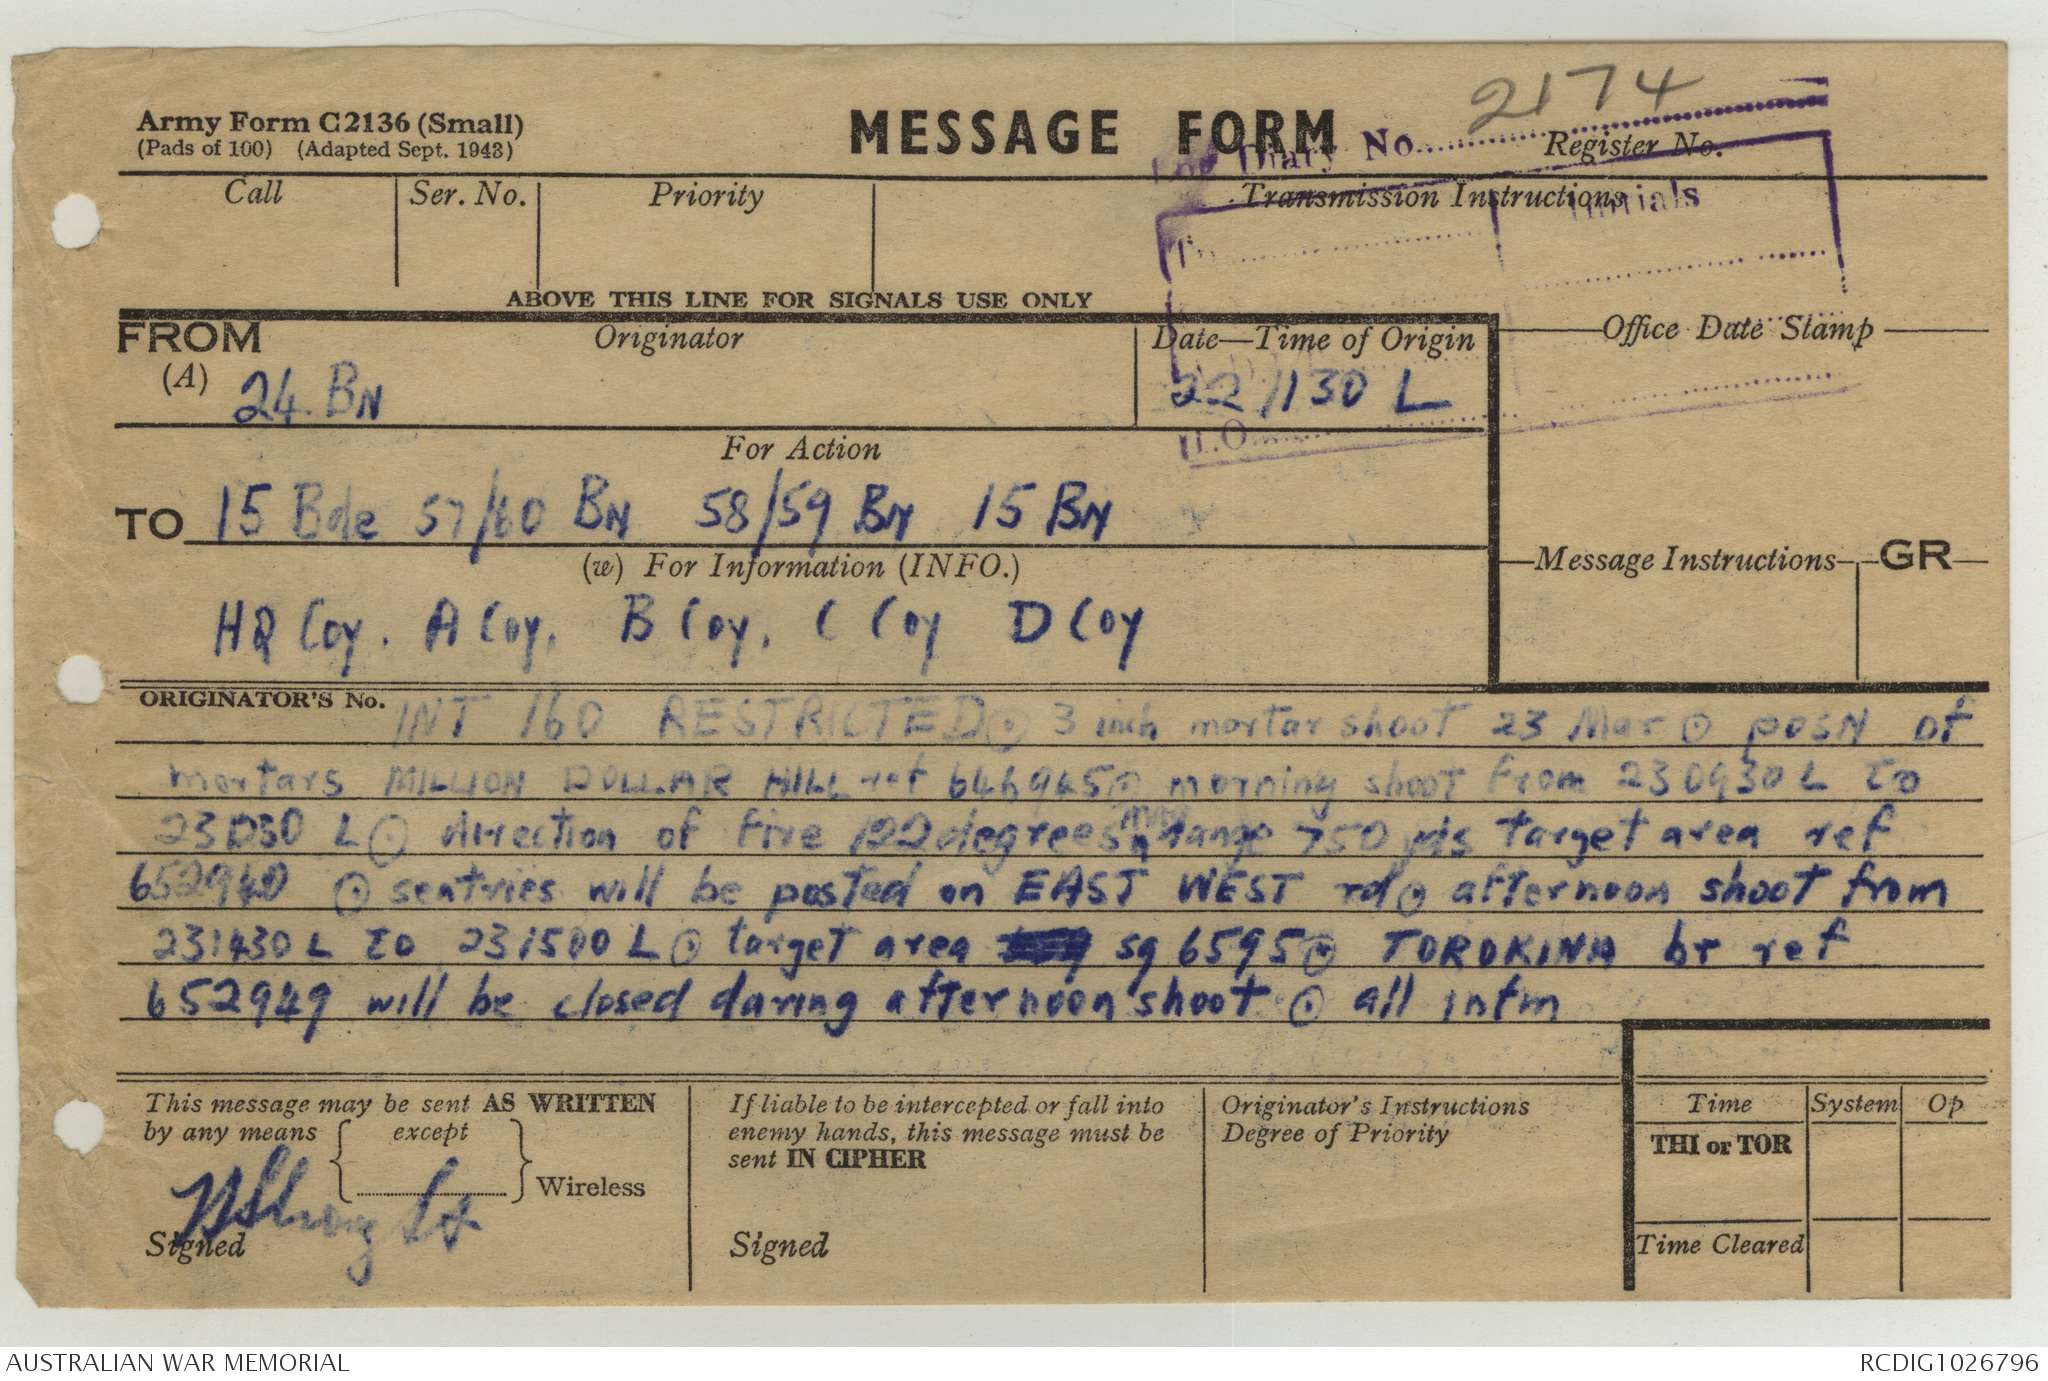 Army Form C2136 (Small)
(Pads of 100) (Adapted Sept. 1943)
MESSAGE FORM
2174
Diary No.
Register No.
Call
Ser. No.
Priority
Transmission Instructions
Initials
ABOVE THIS LINE FOR SIGNALS USE ONLY
FROM
(A)
Originator
24 BN
Date—Time of Origin
221130 L
Office Date Stamp
For Action
TO 15 Bde 57/60 BN 58/59 BN 15 BN
(w) For Information (INFO.)
Message Instructions
GR
HQ Coy. A Coy. B Coy. C Coy D Coy
ORIGINATOR'S No.
INT 160 RESTRICTED ⊙ 3 inch mortar shoot 23 Mar ⊙ posn of
mortars MILLION DOLLAR HILL ref 646945 ⊙ morning shoot from 230930 L to
L ⊙ direction of fire 122 degrees range 750 yds target area ref
652940 ⊙ sentries will be posted on EAST WEST rd ⊙ afternoon shoot from
231430 L to 231500 L ⊙ target area sq 6595 ⊙ TOROKINA br ref
652949 will be closed during afternoon shoot ⊙ all infm
This message may be sent AS WRITTEN
by any means except
Wireless
Signed
If liable to be intercepted or fall into
enemy hands, this message must be
sent IN CIPHER
Signed
Originator's Instructions
Degree of Priority
Time
System
Op
THI or TOR
Time Cleared
AUSTRALIAN WAR MEMORIAL
RCDIG1026796